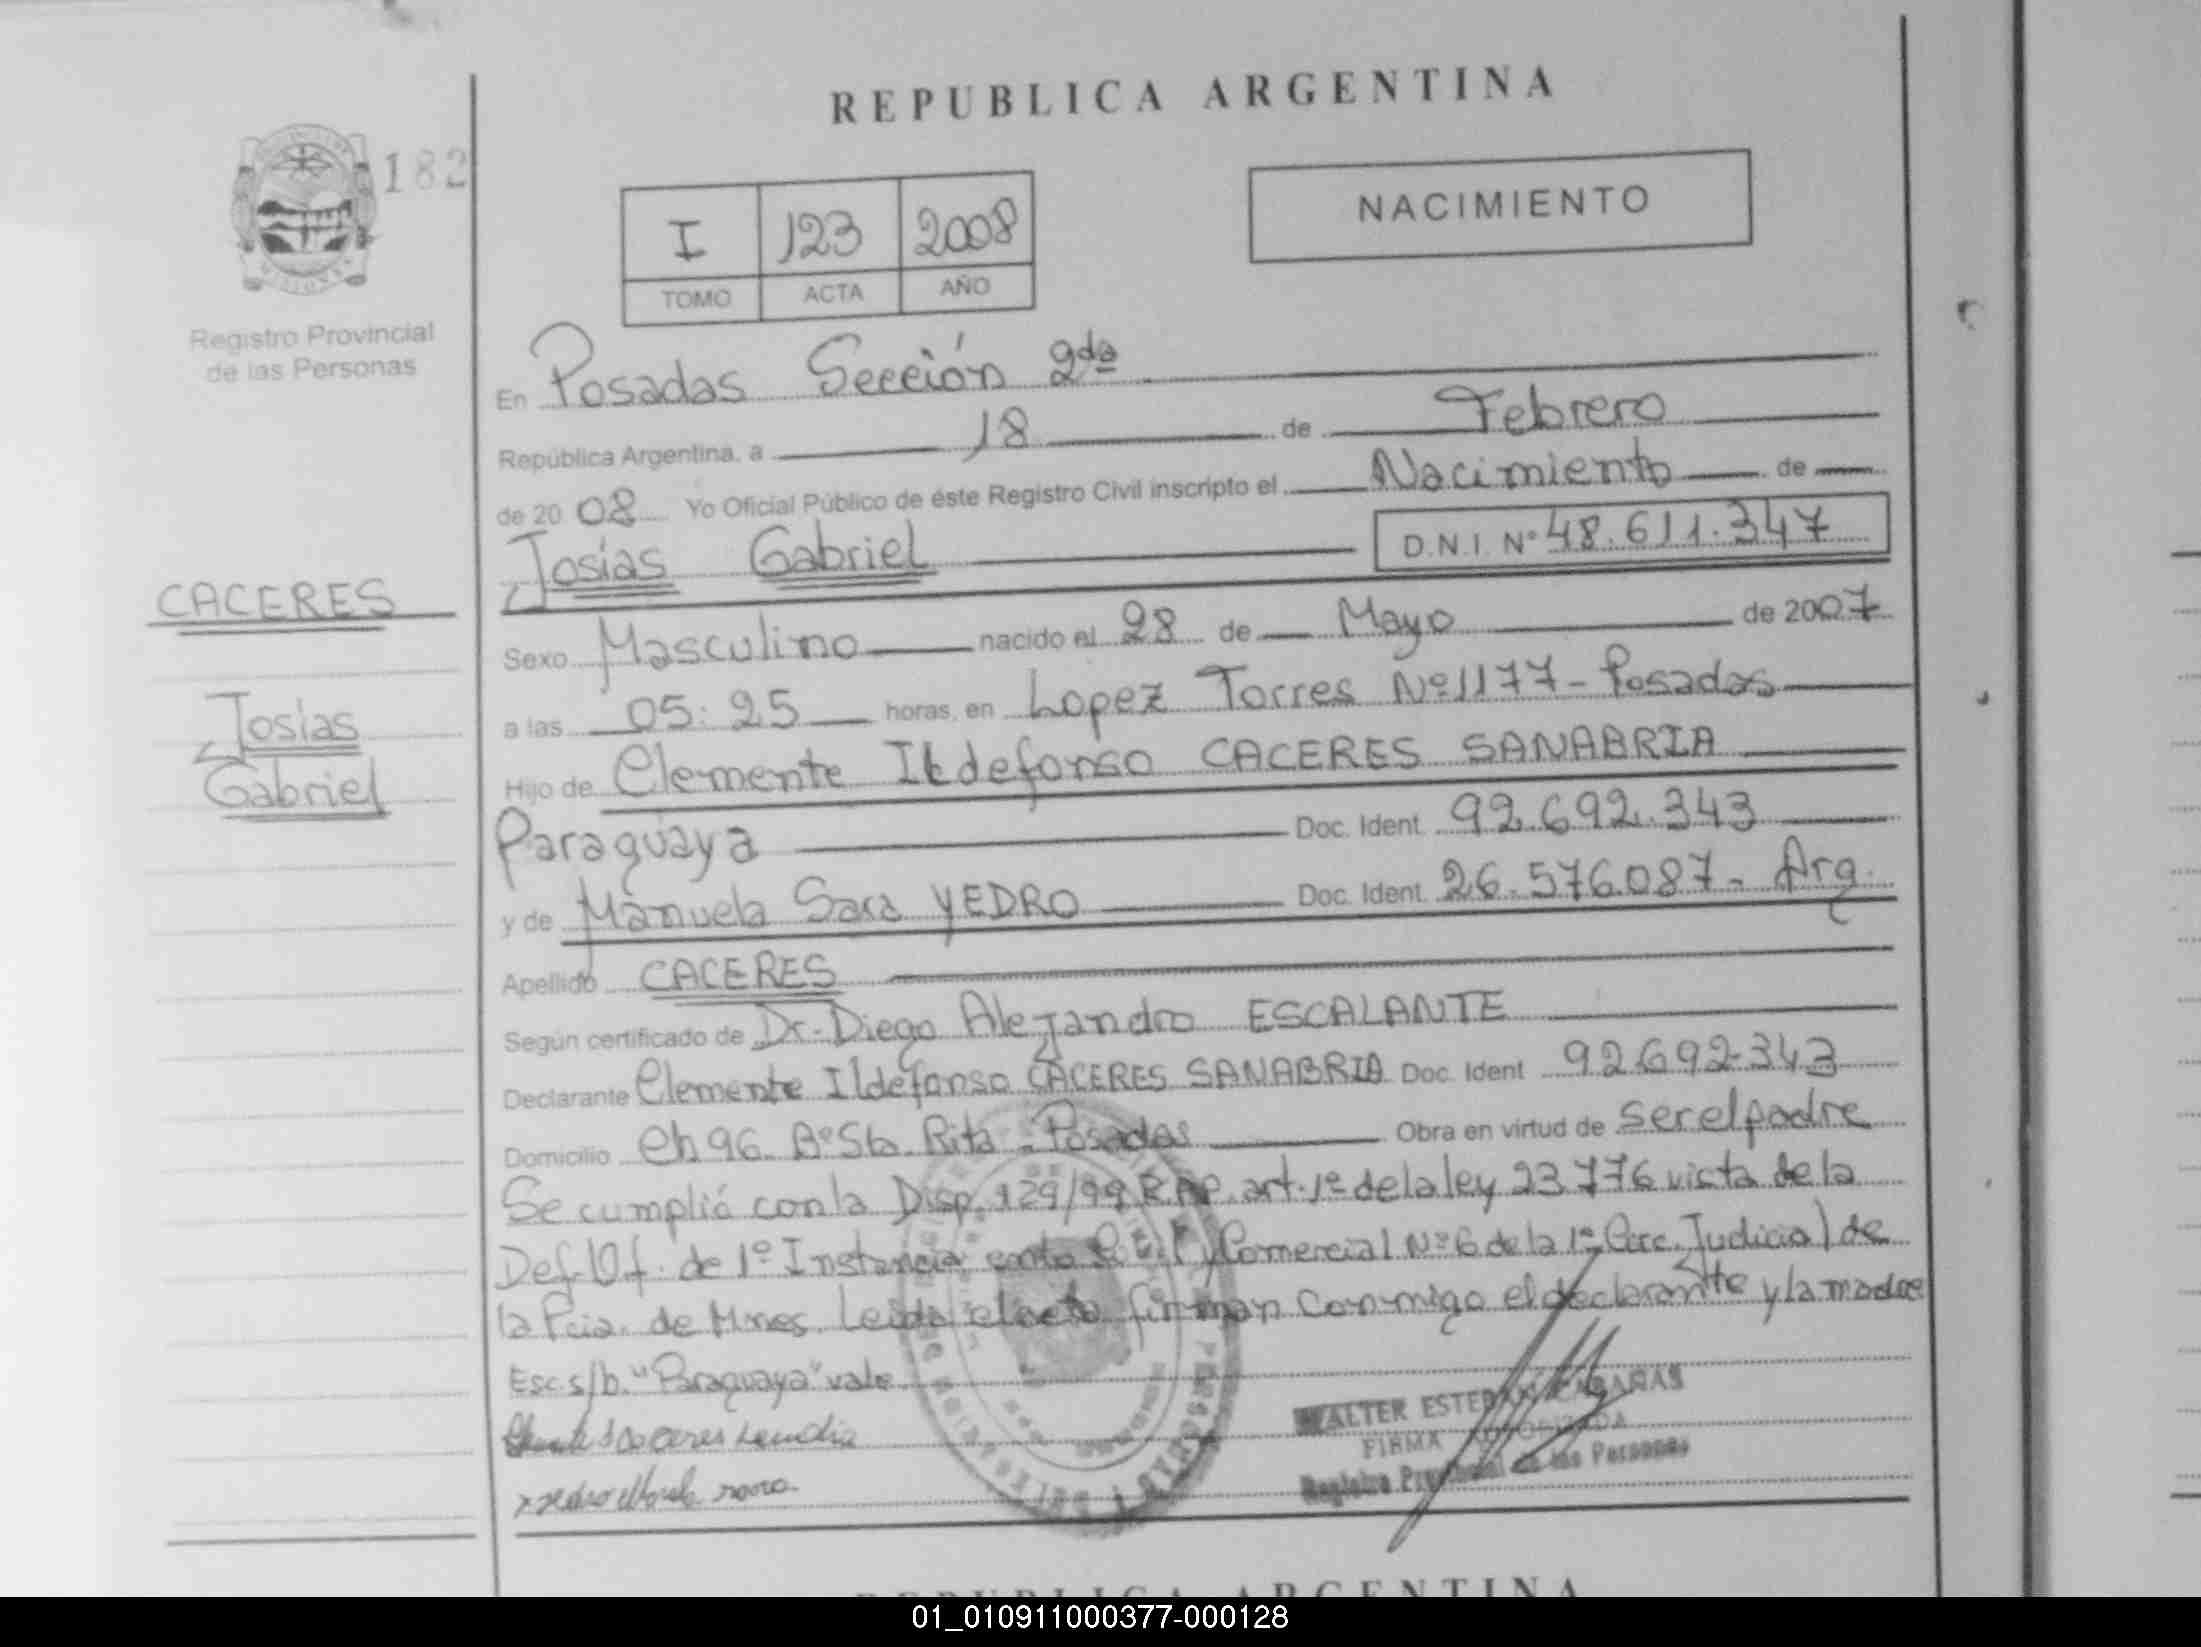 REPUBLICA ARGENTINA
182
NACIMIENTO
I 123 2008
TOMO ACTA AÑO
Registro Provincial
de las Personas
En Posadas Sección 2da
República Argentina, a 18 de Febrero
de 2008 Yo Oficial Público de éste Registro Civil inscripto el Nacimiento de
Josías Gabriel D.N.I. Nº 48.611.347
CACERES
Josías
Gabriel
Sexo Masculino nacido el 28 de Mayo de 2007
a las 05:25 horas, en Lopez Torres Nº 1177 - Posadas
Hijo de Clemente Ildefonso CACERES SANABRIA
Paraguaya Doc. Ident. 92.692.343
y de Manuela Sara YEDRO Doc. Ident. 26.576.087 - Arg.
Apellido CACERES
Según certificado de Dr. Diego Alejandro ESCALANTE
Declarante Clemente Ildefonso CACERES SANABRIA Doc. Ident 92.692.343
Domicilio Ch 96. Bº Sta. Rita - Posadas Obra en virtud de ser el padre
Se cumplió con la Disp. 129/99 R.P.P. art. 1º de la ley 23.776 vista de la
Def. Of. de 1º Instancia Civil y Comercial Nº 6 de la 1ª Circ. Judicial de
la Pcia. de Mnes. Leida el acta firman conmigo el declarante y la madre
Esc. s/b. "Paraguaya" vale
WALTER ESTEBAN CABAÑAS
FIRMA AUTORIZADA
Registro Provincial de las Personas
REPUBLICA ARGENTINA
01_010911000377-000128